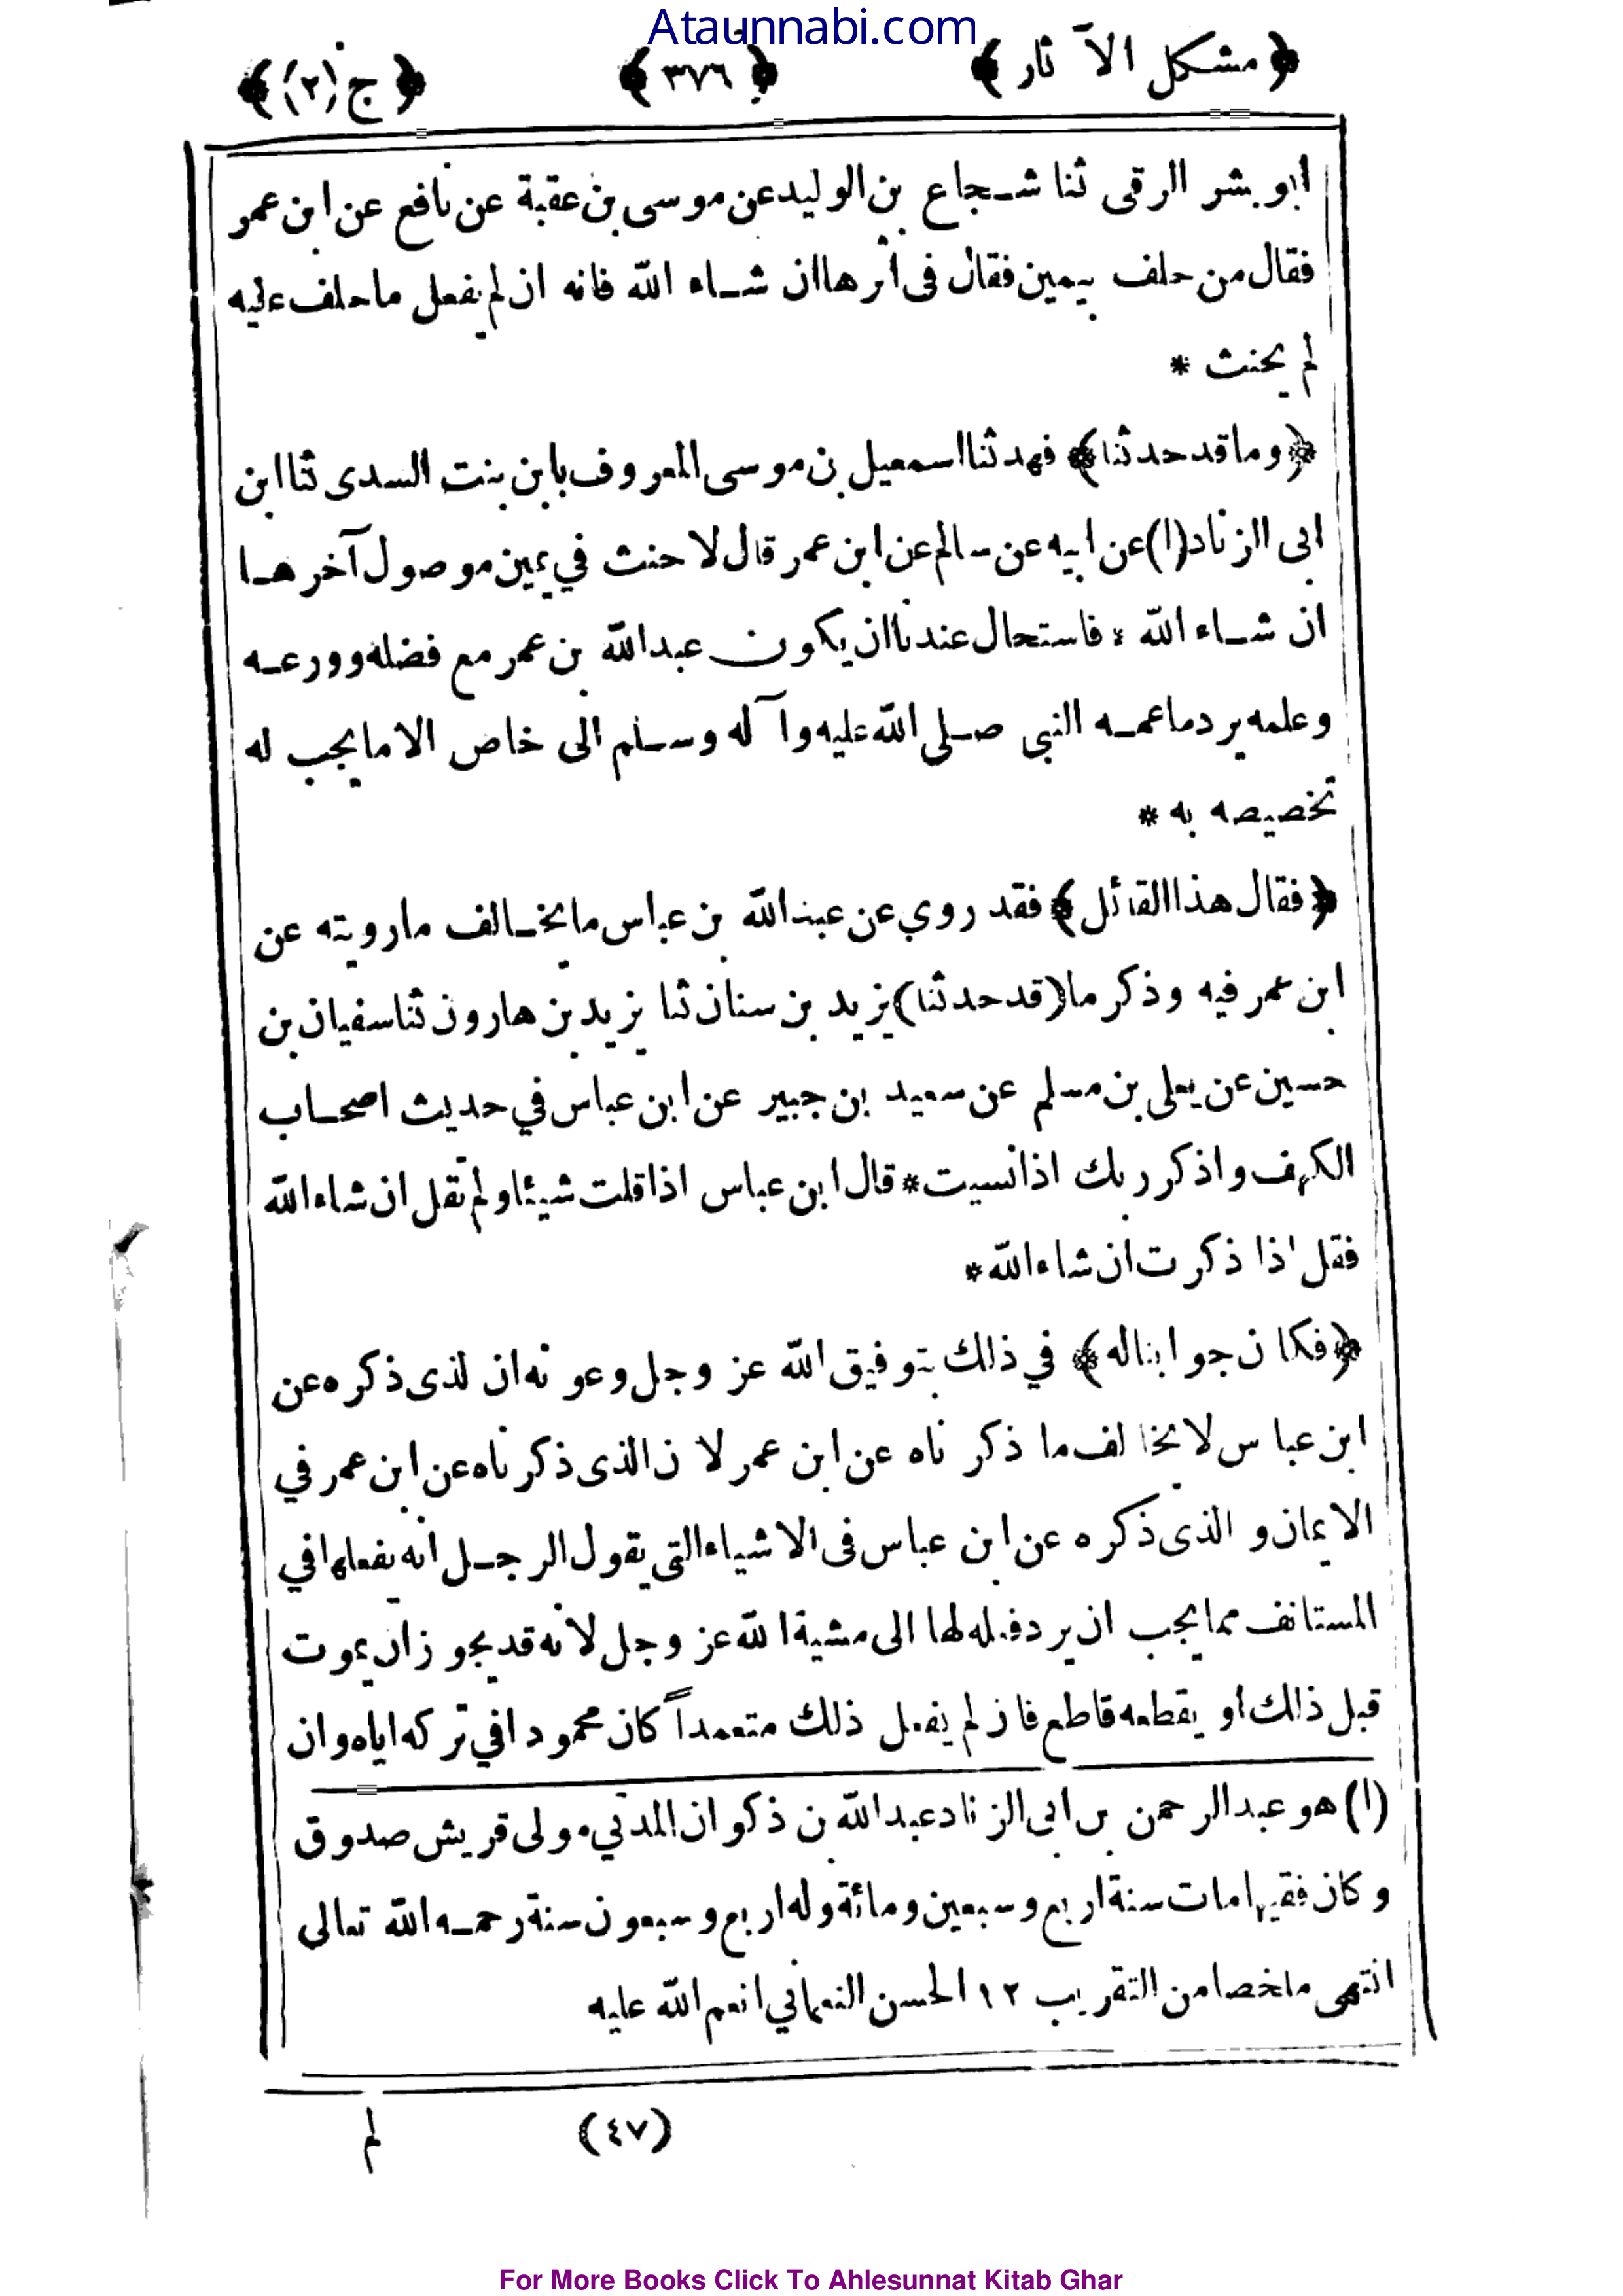 Ataunnabi.com
﴿مشكل الآثار﴾ ﴿٣٧٦﴾ ﴿ج (٢)﴾
ابو بشر الرقى ثنا شجاع بن الوليد عن موسى بن عقبة عن نافع عن ابن عمر
فقال من حلف بيمين فقال فى اثرها ان شاء الله فانه ان لم يفعل ما حلف عليه
لم يحنث *
﴿وما قد حدثنا﴾ فهد ثنا اسمعيل بن موسى المعروف بابن بنت السدى ثنا ابن
ابى الزناد (١) عن ابيه عن سالم عن ابن عمر قال لا حنث في يمين موصول آخرها
ان شاء الله * فاستحال عندنا ان يكون عبد الله بن عمر مع فضله وورعه
وعلمه يرد ما عمه النبى صلى الله عليه وآله وسلم الى خاص الا ما يجب له
تخصيصه به *
﴿فقال هذا القائل﴾ فقد روي عن عبد الله بن عباس ما يخالف ما رويته عن
ابن عمر فيه وذكر ما (قد حدثنا) يزيد بن سنان ثنا يزيد بن هارون ثنا سفيان بن
حسين عن يعلى بن مسلم عن سعيد بن جبير عن ابن عباس في حديث اصحاب
الكهف واذكر ربك اذا نسيت * قال ابن عباس اذا قلت شيئا ولم تقل ان شاء الله
فقل اذا ذكرت ان شاء الله *
﴿فكان جوابنا له﴾ في ذلك بتوفيق الله عز وجل وعونه ان لذى ذكره عن
ابن عباس لا يخالف ما ذكرناه عن ابن عمر لان الذى ذكرناه عن ابن عمر في
الايمان و الذى ذكره عن ابن عباس فى الاشياء التى يقول الرجل انه يفعلها في
المستانف مما يجب ان يرد فعله لها الى مشية الله عز وجل لانه قد يجوز ان يموت
قبل ذلك او يقطعه قاطع فان لم يفعل ذلك متعمداً كان محمودا في تركه اياه وان
(١) هو عبد الرحمن بن ابى الزناد عبد الله بن ذكوان المدني مولى قريش صدوق
وكان فقيها مات سنة اربع وسبعين ومائة وله اربع وسبعون سنة رحمه الله تعالى
انتهى ملخصا من التقريب ١٢ الحسن النعماني انعم الله عليه
(٤٧) لم
For More Books Click To Ahlesunnat Kitab Ghar